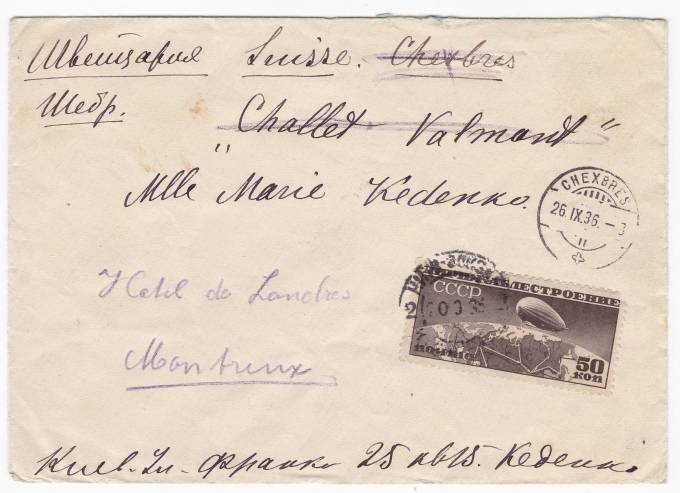 Швейцария Suisse. Chexbres
Шебр.
"Challet Valmont"
Mlle Marie Kedenko.
CHEXBRES
26.IX.36.
Hotel de Londres
Montreux
ДИРИЖАБЛЕСТРОЕНИЕ
СССР
ПОЧТА
50 КОП
Киев. Ул. Франко 25 кв 15. Кеденко